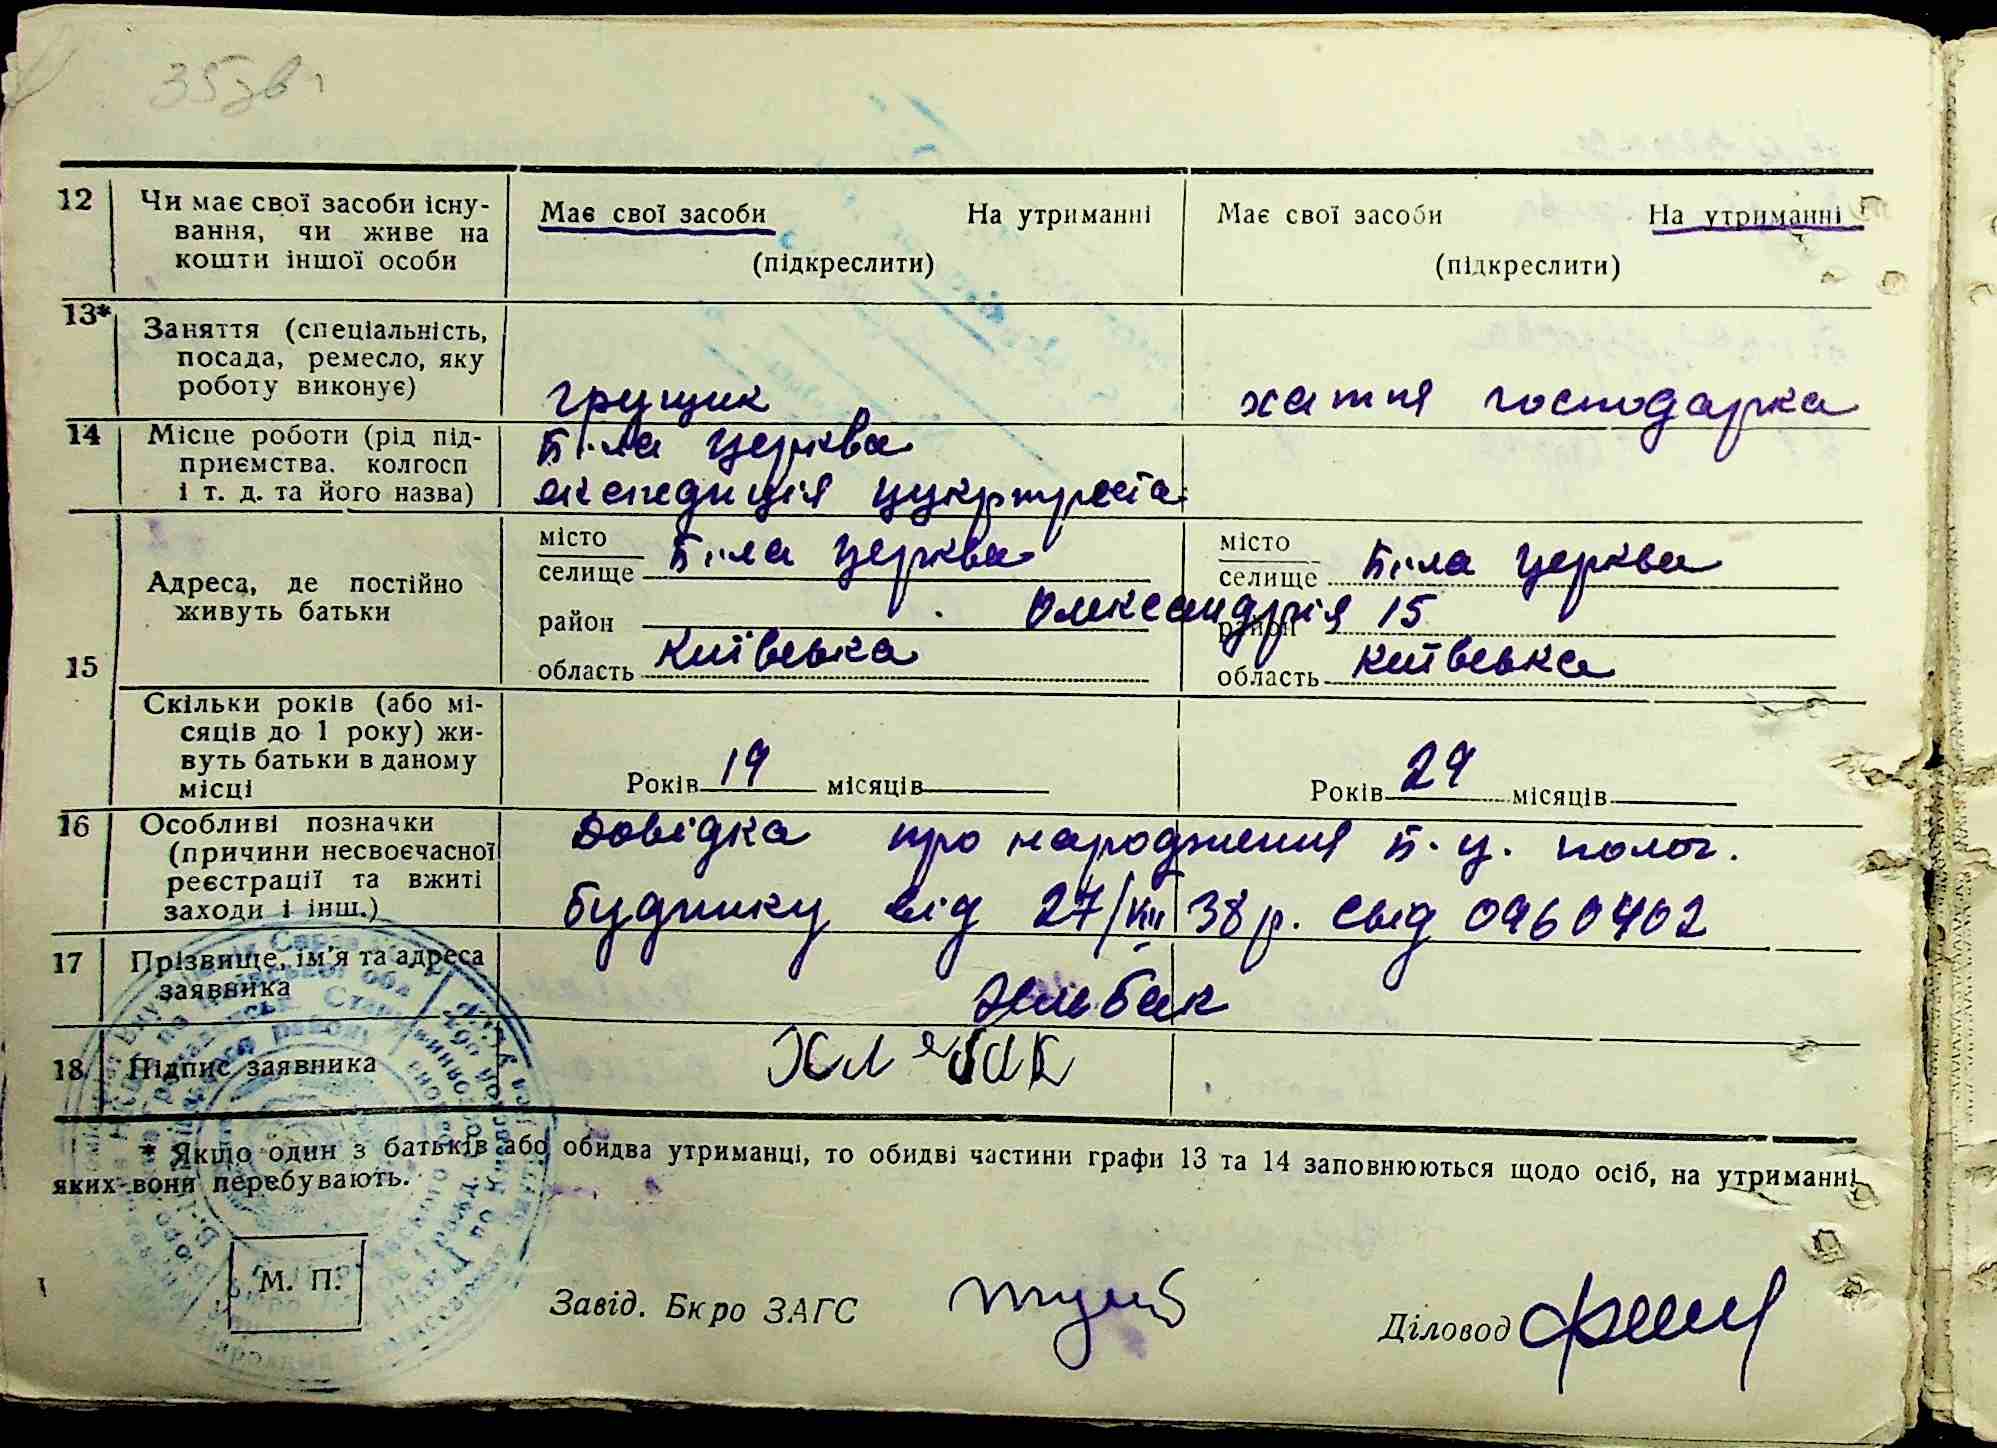 12 Чи має свої засоби існу- Має свої засоби На утриманні Має свої засоби На утриманні
вання, чи живе на
кошти іншої особи (підкреслити) (підкреслити)
13* Заняття (спеціальність,
посада, ремесло, яку
роботу виконує) грущик хатня господарка
14 Місце роботи (рід під- Біла Церква
приємства. колгосп
і т. д. та його назва) експедиція цукртреста
15 Адреса, де постійно
живуть батьки
місто Біла Церква місто Біла Церква
селище селище
район Олександрія 15 район
область Київська область Київська
Скільки років (або мі-
сяців до 1 року) жи-
вуть батьки в даному
місці Років 19 місяців Років 29 місяців
16 Особливі позначки Довідка про народження Б. Ц. полог.
(причини несвоєчасної
реєстрації та вжиті будинку від 27/VIII 38 р. свід 0960402
заходи і інш.)
17 Прізвище, ім'я та адреса
заявника
18 Підпис заявника
* Якщо один з батьків або обидва утриманці, то обидві частини графи 13 та 14 заповнюються щодо осіб, на утриманні
яких вони перебувають.
М. П.
Завід. Бюро ЗАГС Діловод